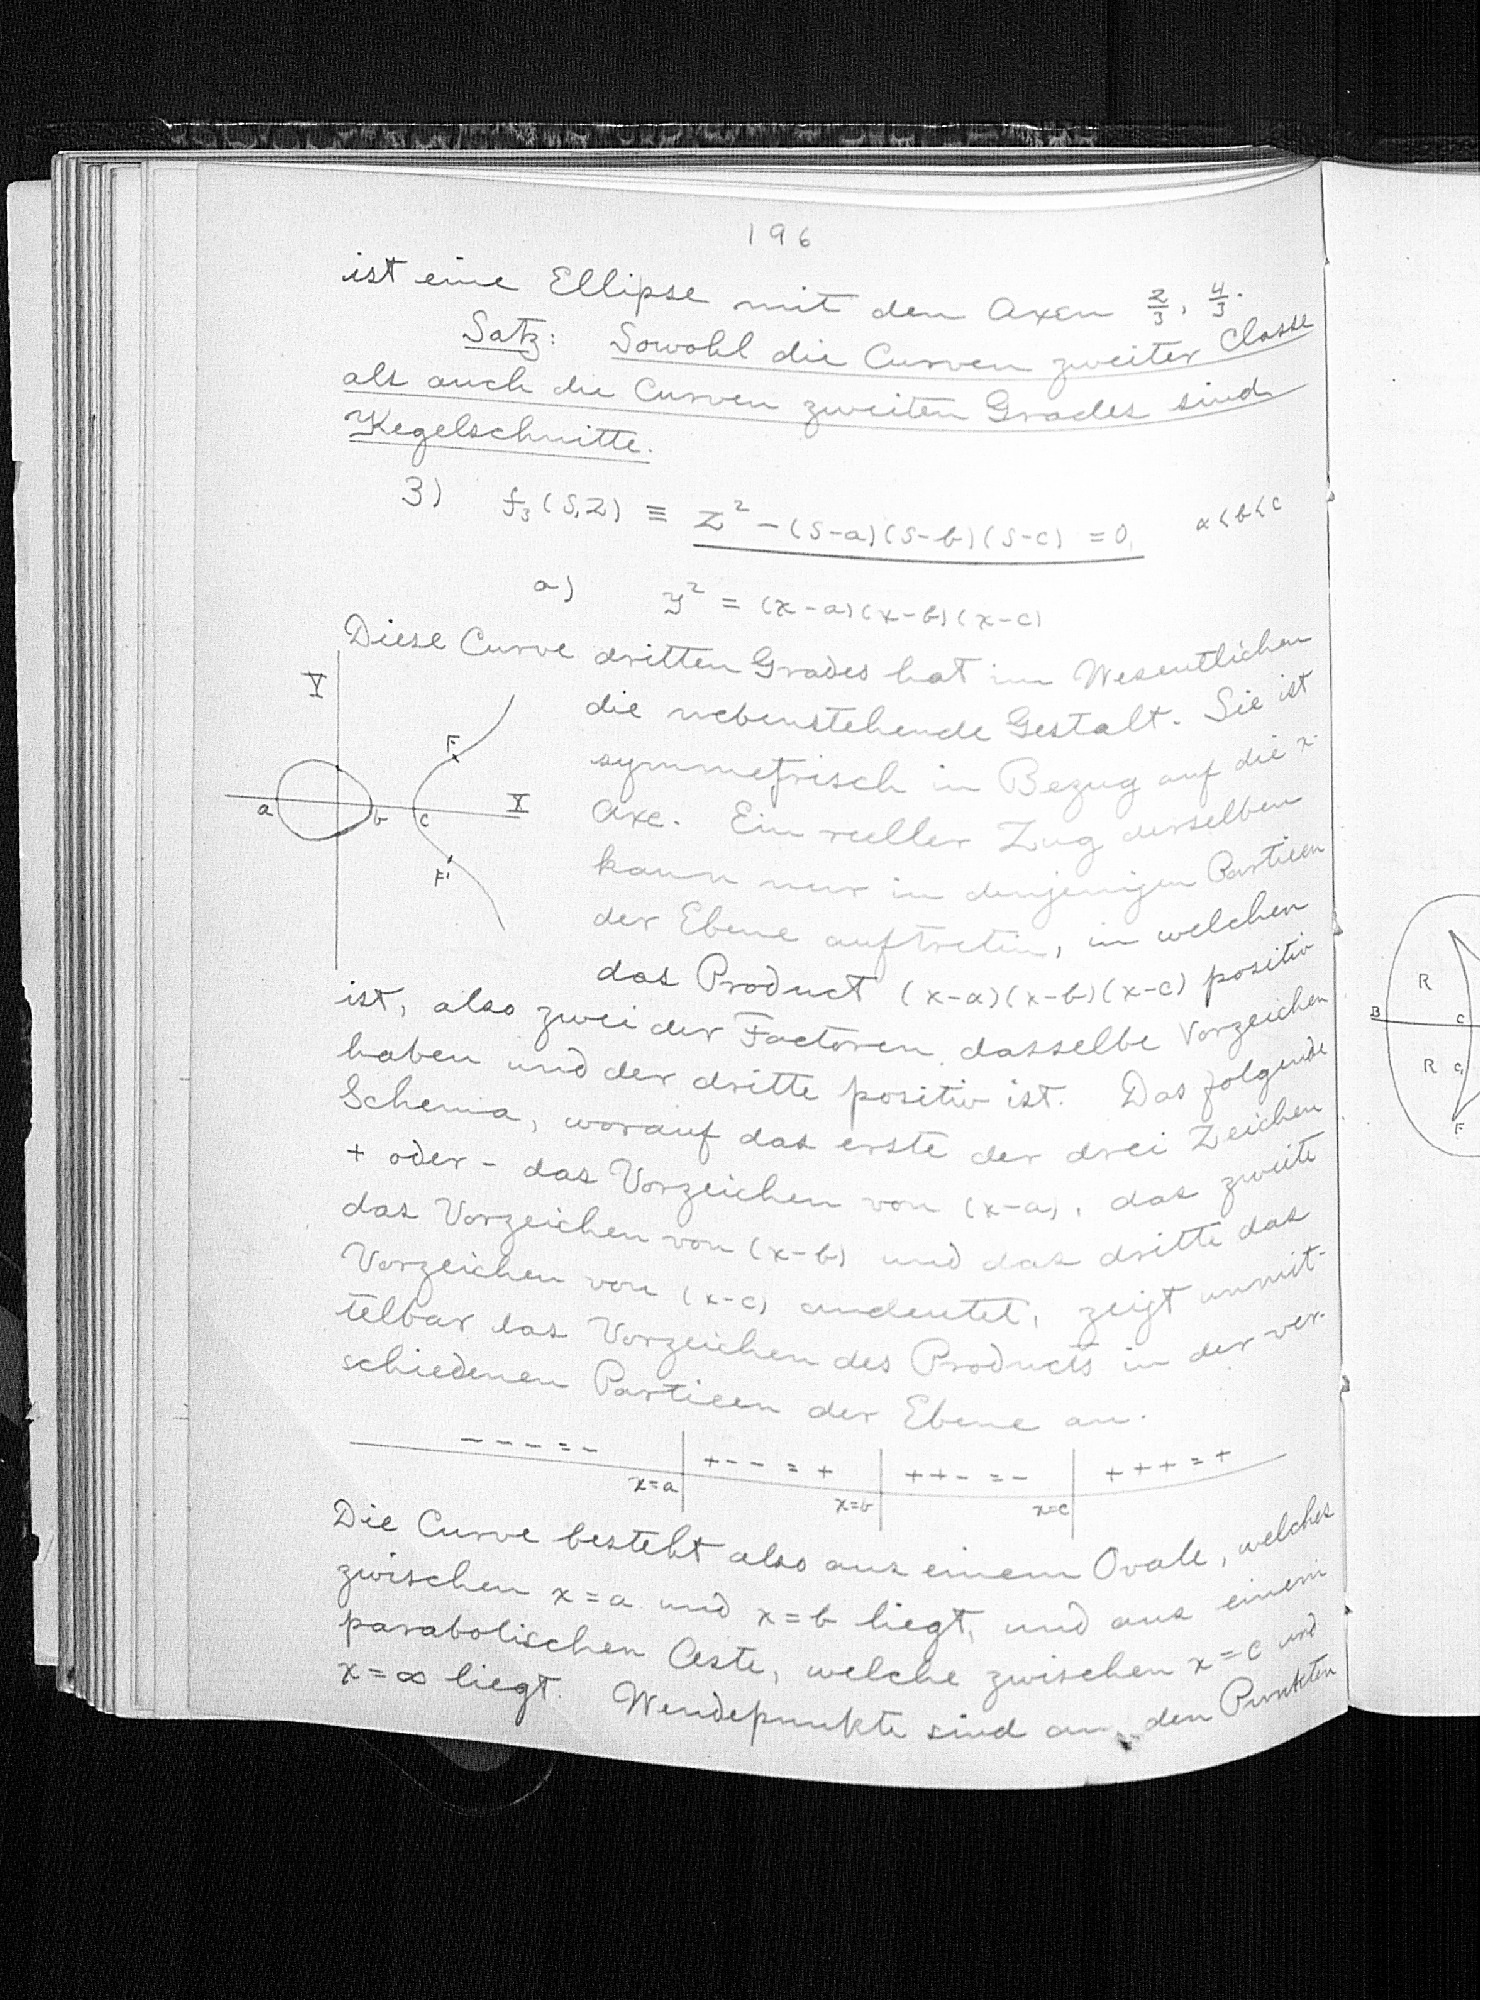 196
ist eine Ellipse mit den Axen 2/3, 4/3.
Satz: Sowohl die Curven zweiter Classe
als auch die Curven zweiten Grades sind
Kegelschnitte.
3) f₃(S,Z) ≡ Z² – (S–a)(S–b)(S–c) = 0, a<b<c
a) y² = (x–a)(x–b)(x–c)
Diese Curve dritten Grades hat im Wesentlichen
die nebenstehende Gestalt. Sie ist
symmetrisch in Bezug auf die x-
Axe. Ein reeller Zug derselben
kann nur in denjenigen Partieen
der Ebene auftreten, in welchen
das Product (x–a)(x–b)(x–c) positiv
Y
F
a b c X
F'
ist, also zwei der Factoren dasselbe Vorzeichen
haben und der dritte positiv ist. Das folgende
Schema, worauf das erste der drei Zeichen
+ oder – das Vorzeichen von (x–a), das zweite
das Vorzeichen von (x–b) und das dritte das
Vorzeichen von (x–c) andeutet, zeigt unmit-
telbar das Vorzeichen des Products in der ver-
schiedenen Partieen der Ebene an.
– – – = – + – – = + + + – = – + + + = +
x=a x=b x=c
Die Curve besteht also aus einem Ovale, welches
zwischen x=a und x=b liegt, und aus einem
parabolischen Aste, welche zwischen x=c und
x=∞ liegt. Wendepunkte sind an den Punkten
R
B C
R C₁
F